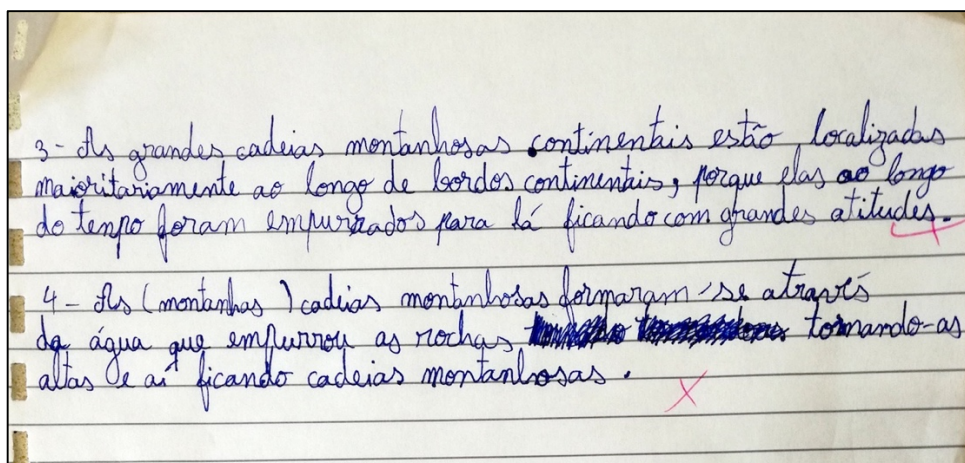 3- As grandes cadeias montanhosas continentais estão localizadas
maioritariamente ao longo de bordos continentais, porque elas ao longo
do tempo foram empurrados para lá ficando com grandes atitudes.
4- As (montanhas) cadeias montanhosas formaram-se através
da água que empurrou as rochas tornando-as
altas e aí ficando cadeias montanhosas.